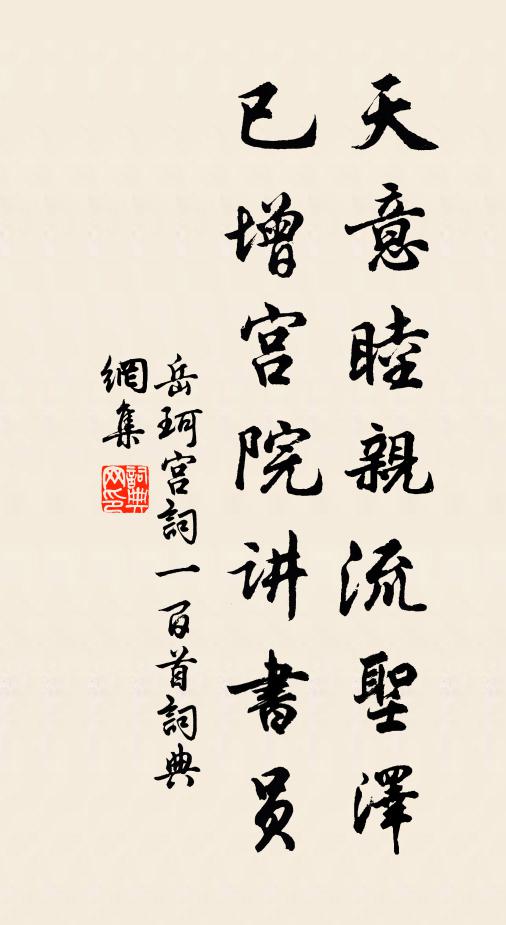 天意睦親流聖澤
已增宫院讲書员
岳珂宫詞一百首詞典
網集
詞典
网印